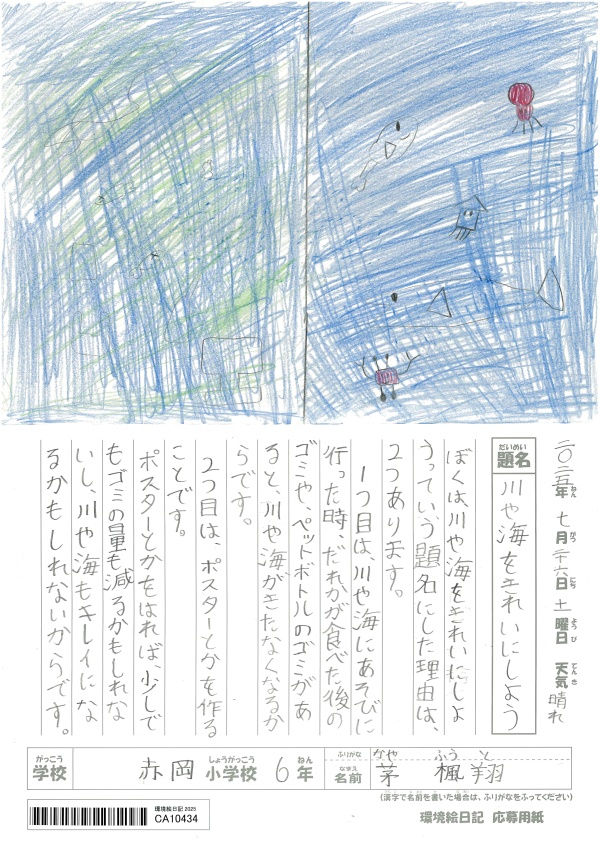 二〇二五年ねん 七月がつ二十六日にち 土曜日ようび 天気てんき 晴れ
だいめい
題名
川や海をきれいにしよう
ぼくは川や海をきれいにしよ
うっていう題名にした理由は、
2つあります。
1つ目は、川や海にあそびに
行った時、だれかが食べた後の
ゴミや、ペットボトルのゴミがあ
ると、川や海がきたなくなるか
らです。
2つ目は、ポスターとかを作る
ことです。
ポスターとかをはれば、少しで
もゴミの量も減るかもしれな
いし、川や海もキレイにな
るかもしれないからです。
がっこう
学校
赤岡 小学校しょうがっこう 6年ねん
ふりがな なや ふうと
名前なまえ 茅 楓翔
(漢字で名前を書いた場合は、ふりがなをふってください)
環境絵日記 2025
CA10434
環境絵日記 応募用紙